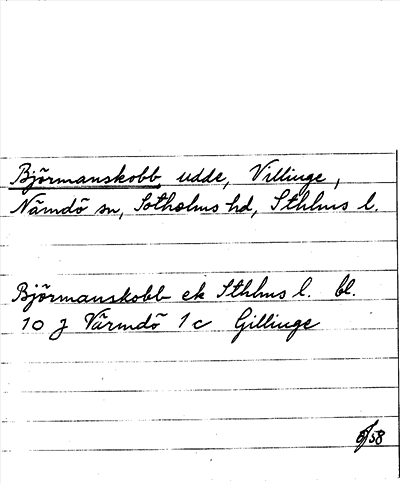 Björmanskobb, udde, Villinge,
Nämdö sn, Sotholms hd, Sthlms l.
Björmanskobb ek Sthlms l. bl.
10 J Värmdö 1c Gillinge
/58